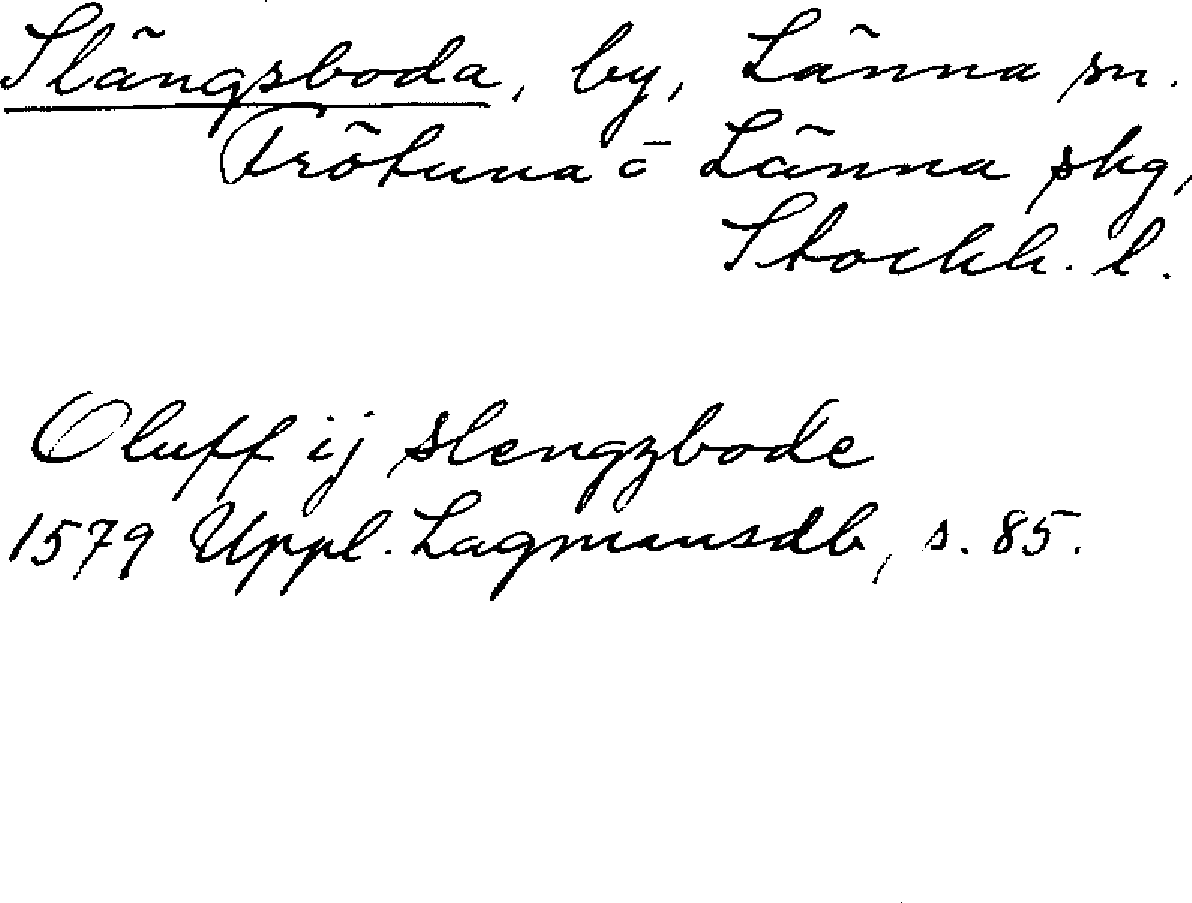 Slängsboda, by, Länna sn.
Frötuna o Länna skg,
Stockh. l.
Oluff ij slengzbode
1579 Uppl. Lagmansdb, s. 85.